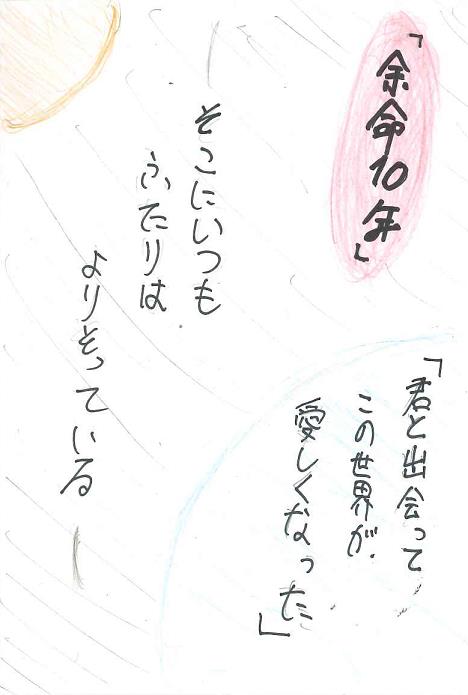 「余命10年」
「君と出会って
この世界が、
愛しくなった」
―そこにいつも
ふたりは
よりそっている―